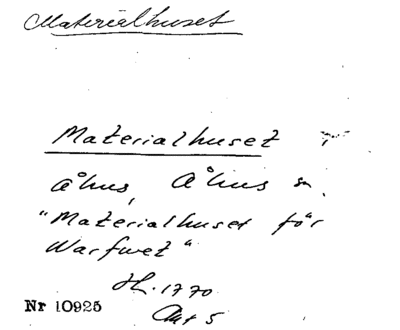 Materialhuset
Materialhuset i
Åhus, Åhus sn.
"Materialhuset för
Warfwet"
Hl. 1770
Akt 5
Nr 10925